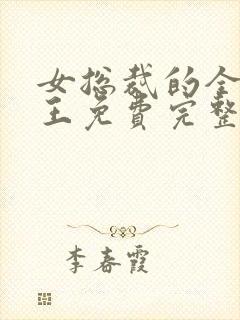 女总裁的全
王免费完整
李春霞